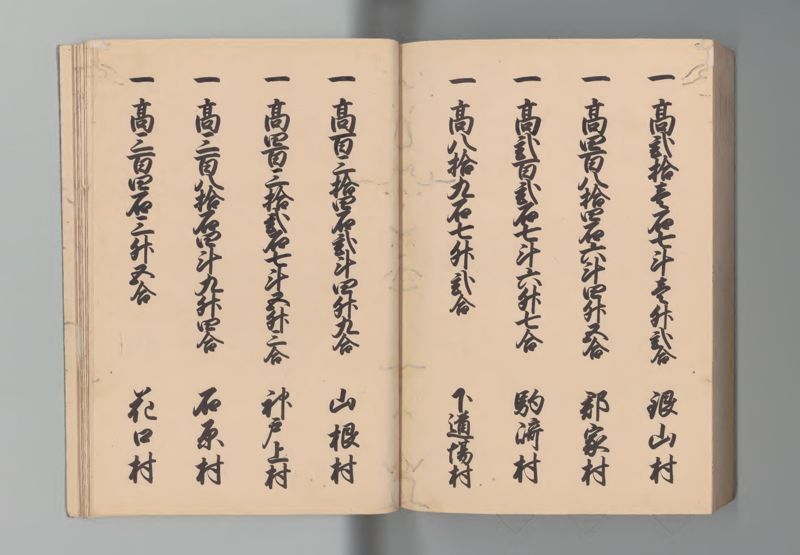 一 高貳拾壱石七斗壱升貳合 銀山村
一 高四百八拾四石六斗四升五合 郡家村
一 高貳百貳石七斗六升七合 駒流村
一 高八拾九石七升貳合 下道場村
一 高百三拾四石貳斗四升九合 山根村
一 高四百三拾貳石七斗五升三合 神戸上村
一 高三百八拾石四斗九升四合 石原村
一 高三百四石三升五合 花口村